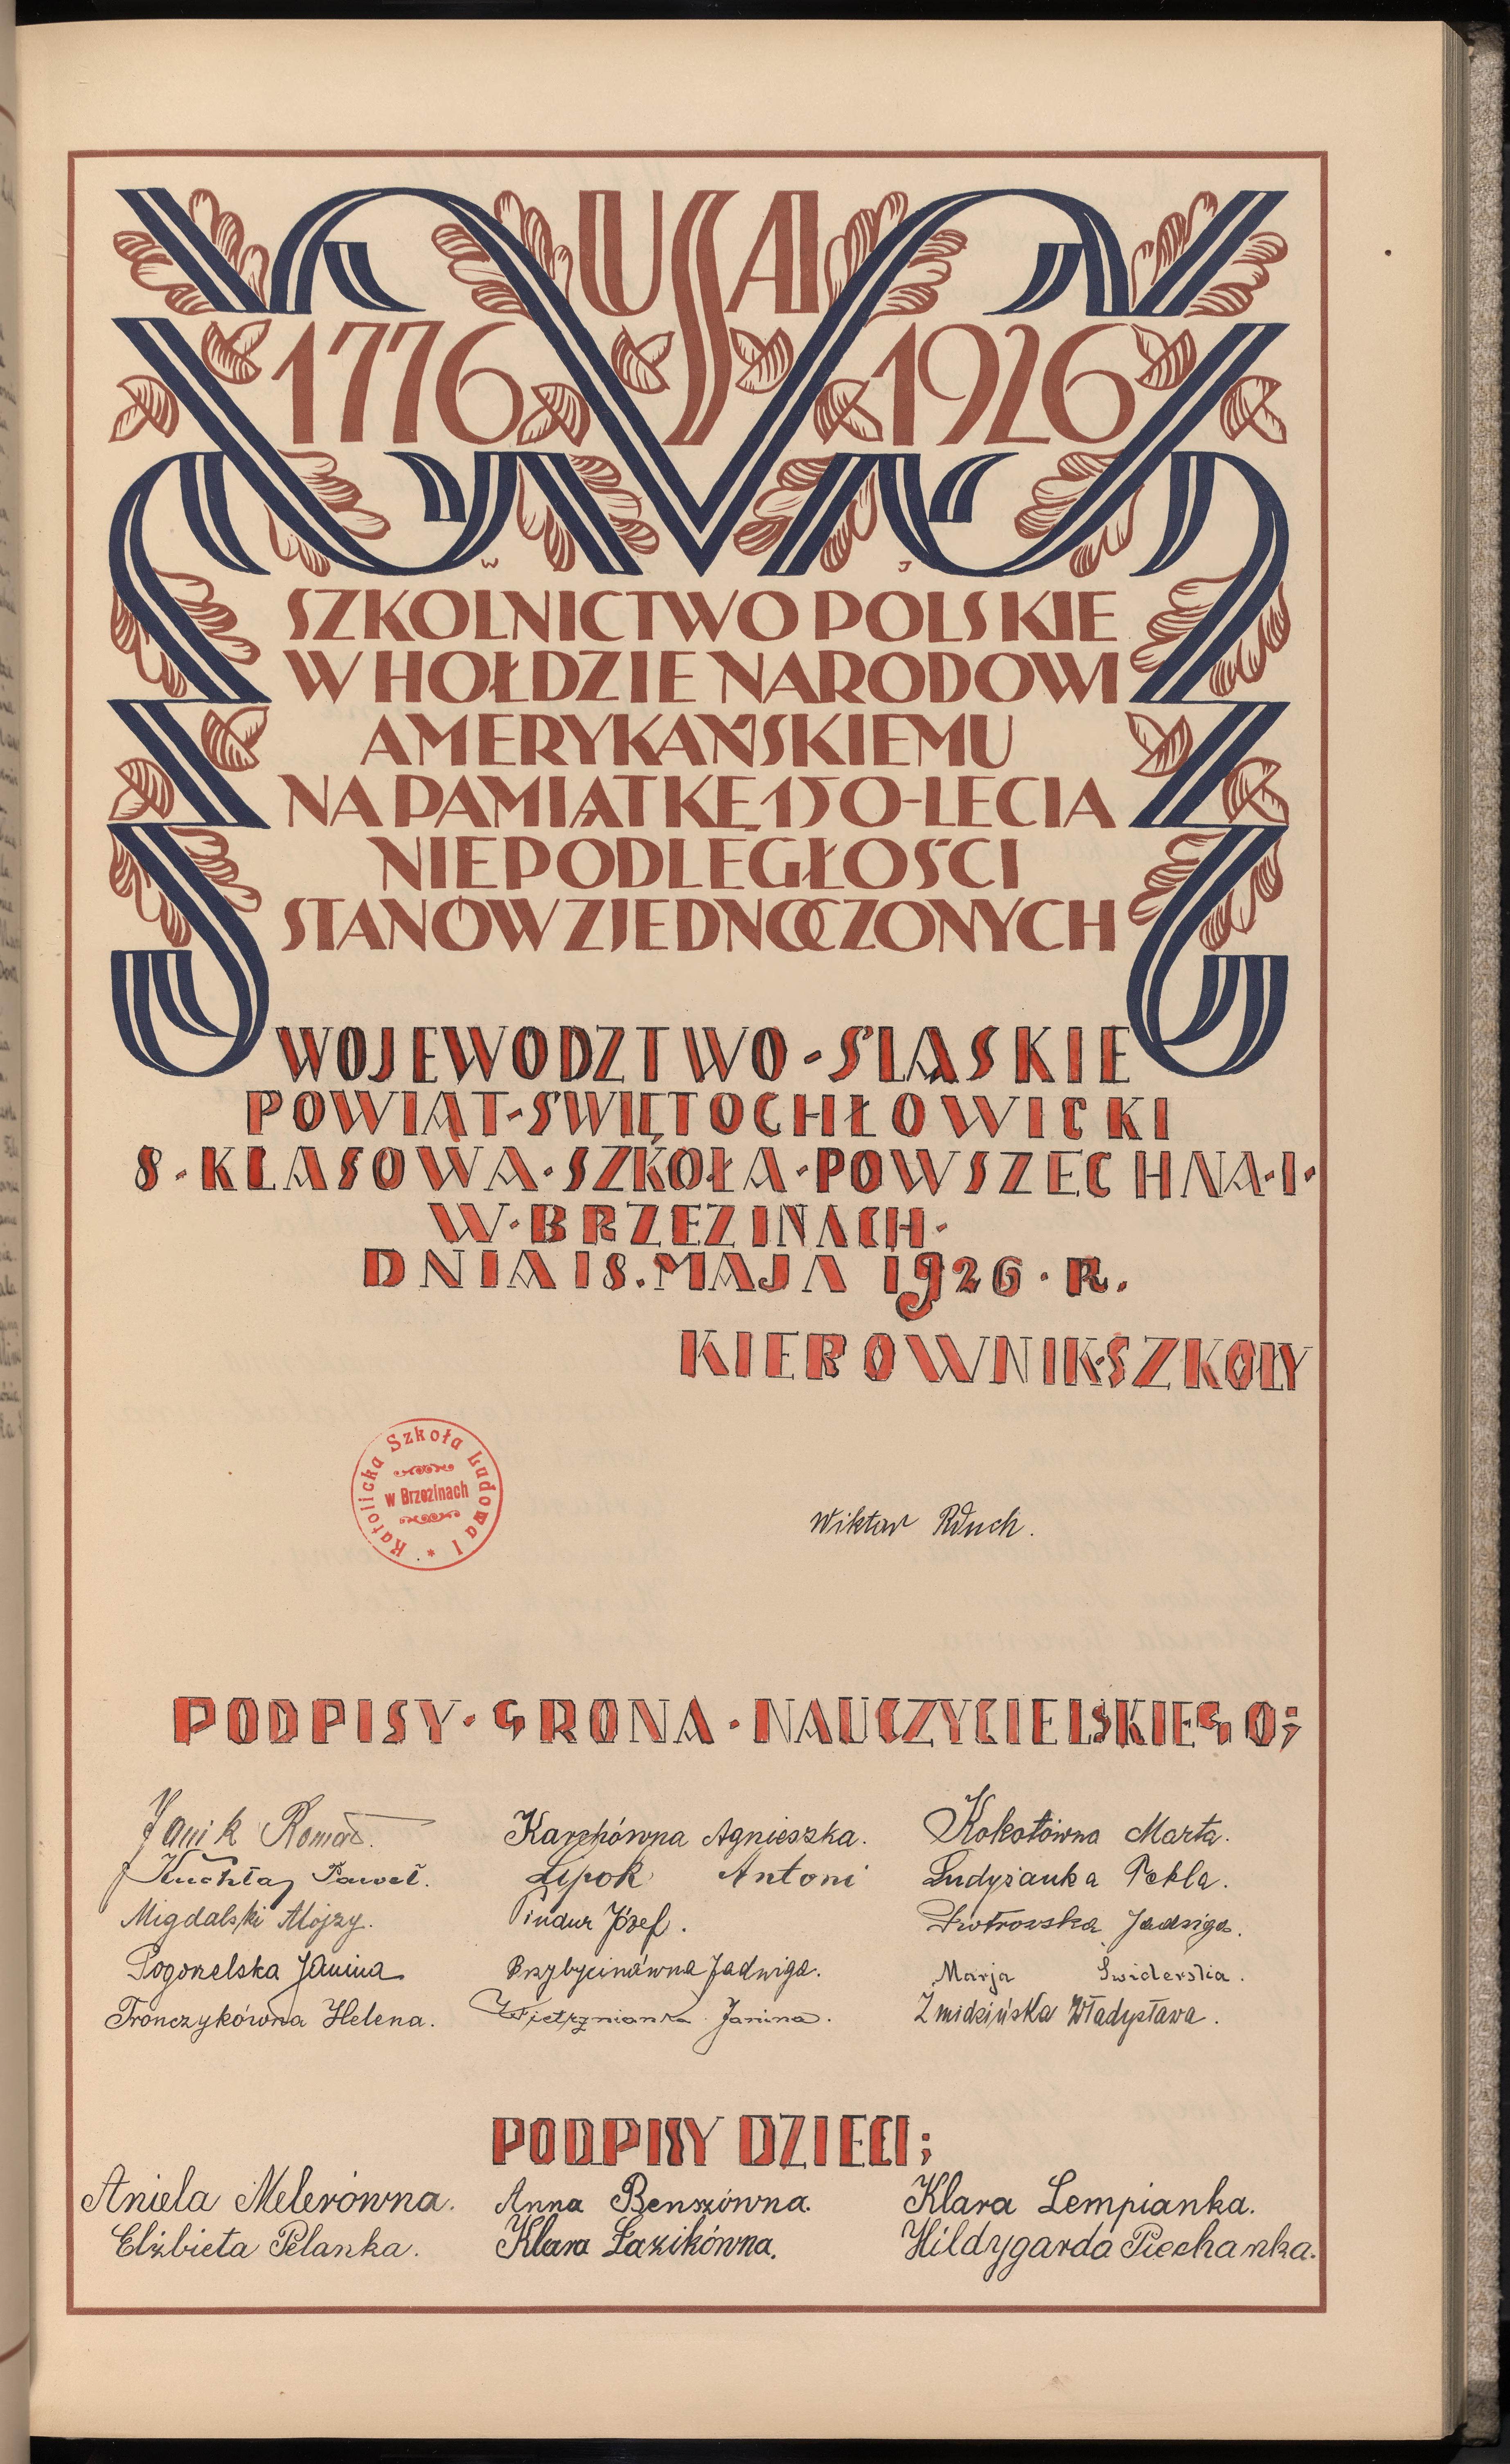 USA
1776 1926
W J
SZKOLNICTWO POLSKIE
W HOŁDZIE NARODOWI
AMERYKAŃSKIEMU
NA PAMIĄTKĘ 150-LECIA
NIEPODLEGŁOŚCI
STANÓW ZJEDNOCZONYCH
WOJEWÓDZTWO-ŚLĄSKIE
POWIAT-ŚWIĘTOCHŁOWICKI
8-KLASOWA·SZKOŁA·POWSZECHNA·I·
W·BRZEZINACH·
DNIA 18. MAJA 1926·R.
KIEROWNIK·SZKOŁY
Katolicka Szkoła Ludowa I *
w Brzezinach
Wiktor
PODPISY·GRONA·NAUCZYCIELSKIEGO;
Janik Roman. Karchówna Agnieszka. Kokotówna Marta.
Paweł. Lipok Antoni Ludyżanka Tekla.
Migdalski Alojzy. Pindur Józef. Piotrowska Jadwiga.
Pogorzelska Janina Przybycinówna Jadwiga. Marja Świderska.
Fronczykówna Helena. Wietrznianka Janina. Żmidzińska Władysława.
PODPISY DZIECI;
Aniela Melerówna. Anna Benszówna. Klara Lempianka.
Elżbieta Pelanka. Klara Łazikówna. Hildygarda Piechanka.